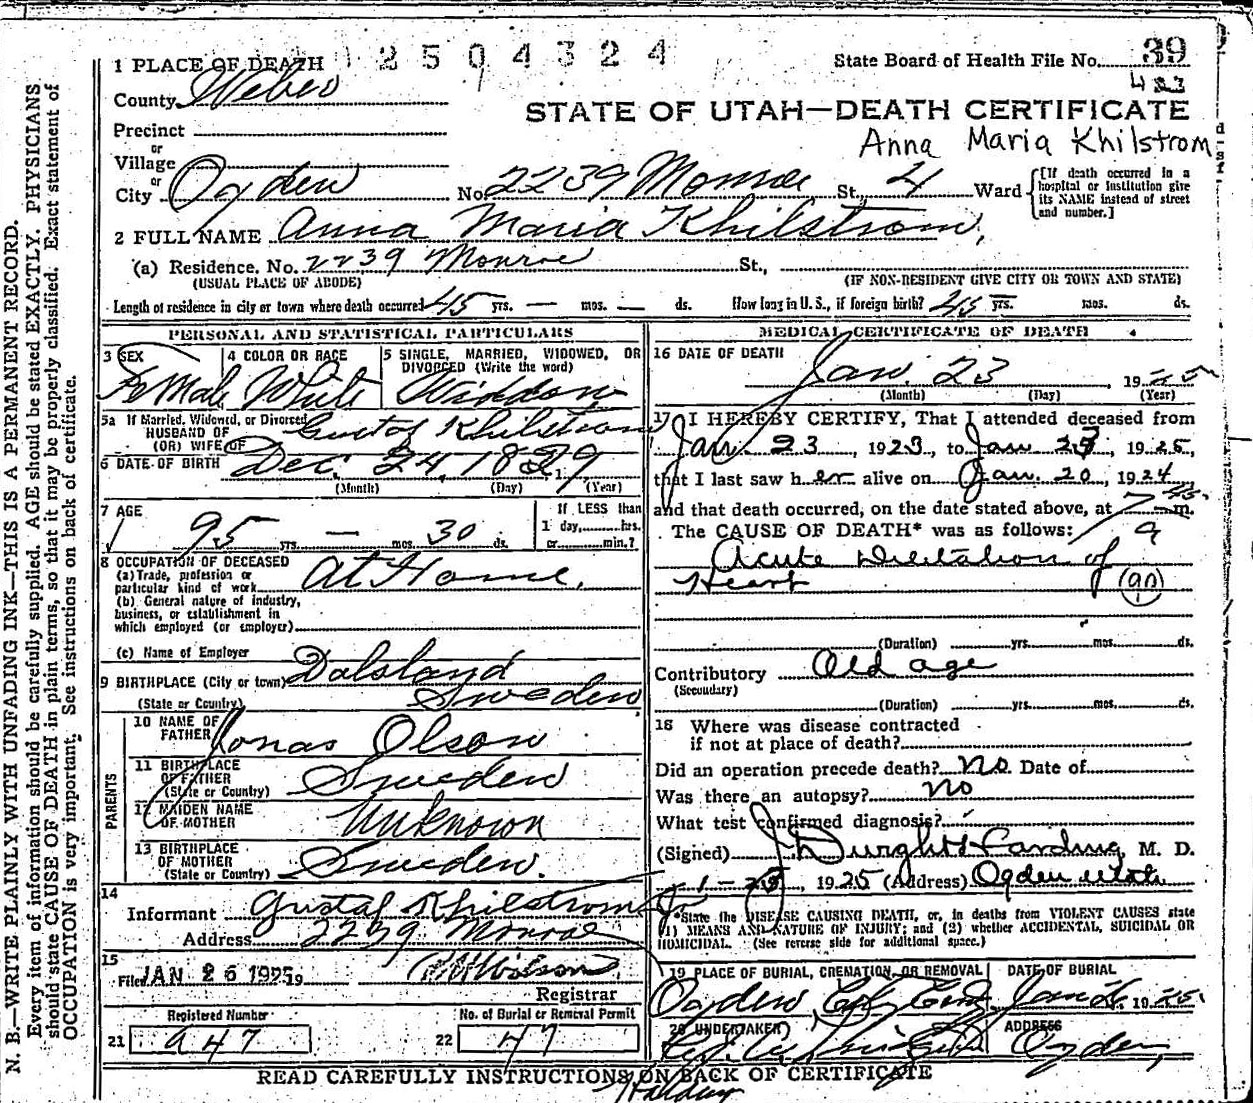 N. B.—WRITE PLAINLY WITH UNFADING INK—THIS IS A PERMANENT RECORD.
Every item of information should be carefully supplied. AGE should be stated EXACTLY. PHYSICIANS
should state CAUSE OF DEATH in plain terms, so that it may be properly classified. Exact statement of
OCCUPATION is very important. See instructions on back of certificate.
2504324
State Board of Health File No. 39
423
1 PLACE OF DEATH
County Weber
STATE OF UTAH—DEATH CERTIFICATE
Anna Maria Khilstrom
Precinct
or
Village
or
City Ogden No. 2239 Monroe St. 4 Ward
[If death occurred in a
hospital or institution give
its NAME instead of street
and number.]
2 FULL NAME Anna Maria Khilstrom,
(a) Residence. No. 2239 Monroe St.,
(USUAL PLACE OF ABODE) (IF NON-RESIDENT GIVE CITY OR TOWN AND STATE)
Length of residence in city or town where death occurred 45 yrs. — mos. — ds. How long in U. S., if foreign birth? 45 yrs. mos. ds.
PERSONAL AND STATISTICAL PARTICULARS
3 SEX
FeMale
4 COLOR OR RACE
White
5 SINGLE, MARRIED, WIDOWED, OR
DIVORCED (Write the word)
Widdow
5a If Married, Widowed, or Divorced
HUSBAND OF
(OR) WIFE OF Gustof Khilstrom
6 DATE OF BIRTH Dec. 24, 1829
(Month) (Day) (Year)
7 AGE
95 yrs. — mos. 30 ds.
If LESS than
1 day, hrs.
or min.?
8 OCCUPATION OF DECEASED
(a) Trade, profession or
particular kind of work At Home.
(b) General nature of industry,
business, or establishment in
which employed (or employer)
(c) Name of Employer
9 BIRTHPLACE (City or town) Dalsland
(State or Country) Sweden
PARENTS
10 NAME OF
FATHER Jonas Olson
11 BIRTHPLACE
OF FATHER
(State or Country) Sweden
12 MAIDEN NAME
OF MOTHER Unknown
13 BIRTHPLACE
OF MOTHER
(State or Country) Sweden.
14
Informant Gustaf Khilstrom Jr
Address 2239 Monroe
15
Filed JAN 26 1925 19
Registrar
Registered Number
21 947
No. of Burial or Removal Permit
22 47
MEDICAL CERTIFICATE OF DEATH
16 DATE OF DEATH
Jan. 23, 1925
(Month) (Day) (Year)
17 I HEREBY CERTIFY, That I attended deceased from
Jan. 23, 1923, to Jan 23, 1925,
that I last saw her alive on Jan. 20, 1924
and that death occurred, on the date stated above, at 7 45 m.
The CAUSE OF DEATH* was as follows: 9
Acute Dilitation of
Heart (90)
(Duration) yrs. mos. ds.
Contributory Old age
(Secondary)
(Duration) yrs. mos. ds.
18 Where was disease contracted
if not at place of death?
Did an operation precede death? no Date of
Was there an autopsy? no
What test confirmed diagnosis?
(Signed) J Dwight Harding, M. D.
1-25, 1925 (Address) Ogden Utah
*State the DISEASE CAUSING DEATH, or, in deaths from VIOLENT CAUSES state
(1) MEANS AND NATURE OF INJURY; and (2) whether ACCIDENTAL, SUICIDAL OR
HOMICIDAL. (See reverse side for additional space.)
19 PLACE OF BURIAL, CREMATION, OR REMOVAL
Ogden City Cem
DATE OF BURIAL
Jan 26 1925
20 UNDERTAKER
ADDRESS
Ogden,
READ CAREFULLY INSTRUCTIONS ON BACK OF CERTIFICATE